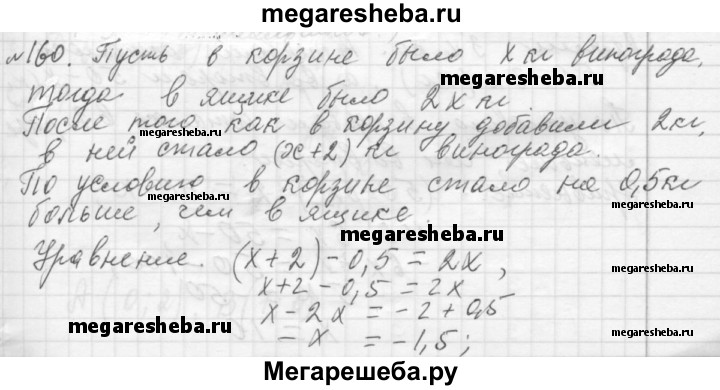 megaresheba.ru
№160. Пусть в корзине было x кг винограда,
тогда в ящике было 2x кг.
После того как в корзину добавили 2кг,
megaresheba.ru megaresheba.ru
в ней стало (x+2) кг винограда.
По условию в корзине стало на 0,5кг
больше, чем в ящике.
megaresheba.ru
Уравнение. (x+2)-0,5=2x,
x+2-0,5=2x
x-2x=-2+0,5
megaresheba.ru megaresheba.ru
-x=-1,5;
Мегарешеба.ру